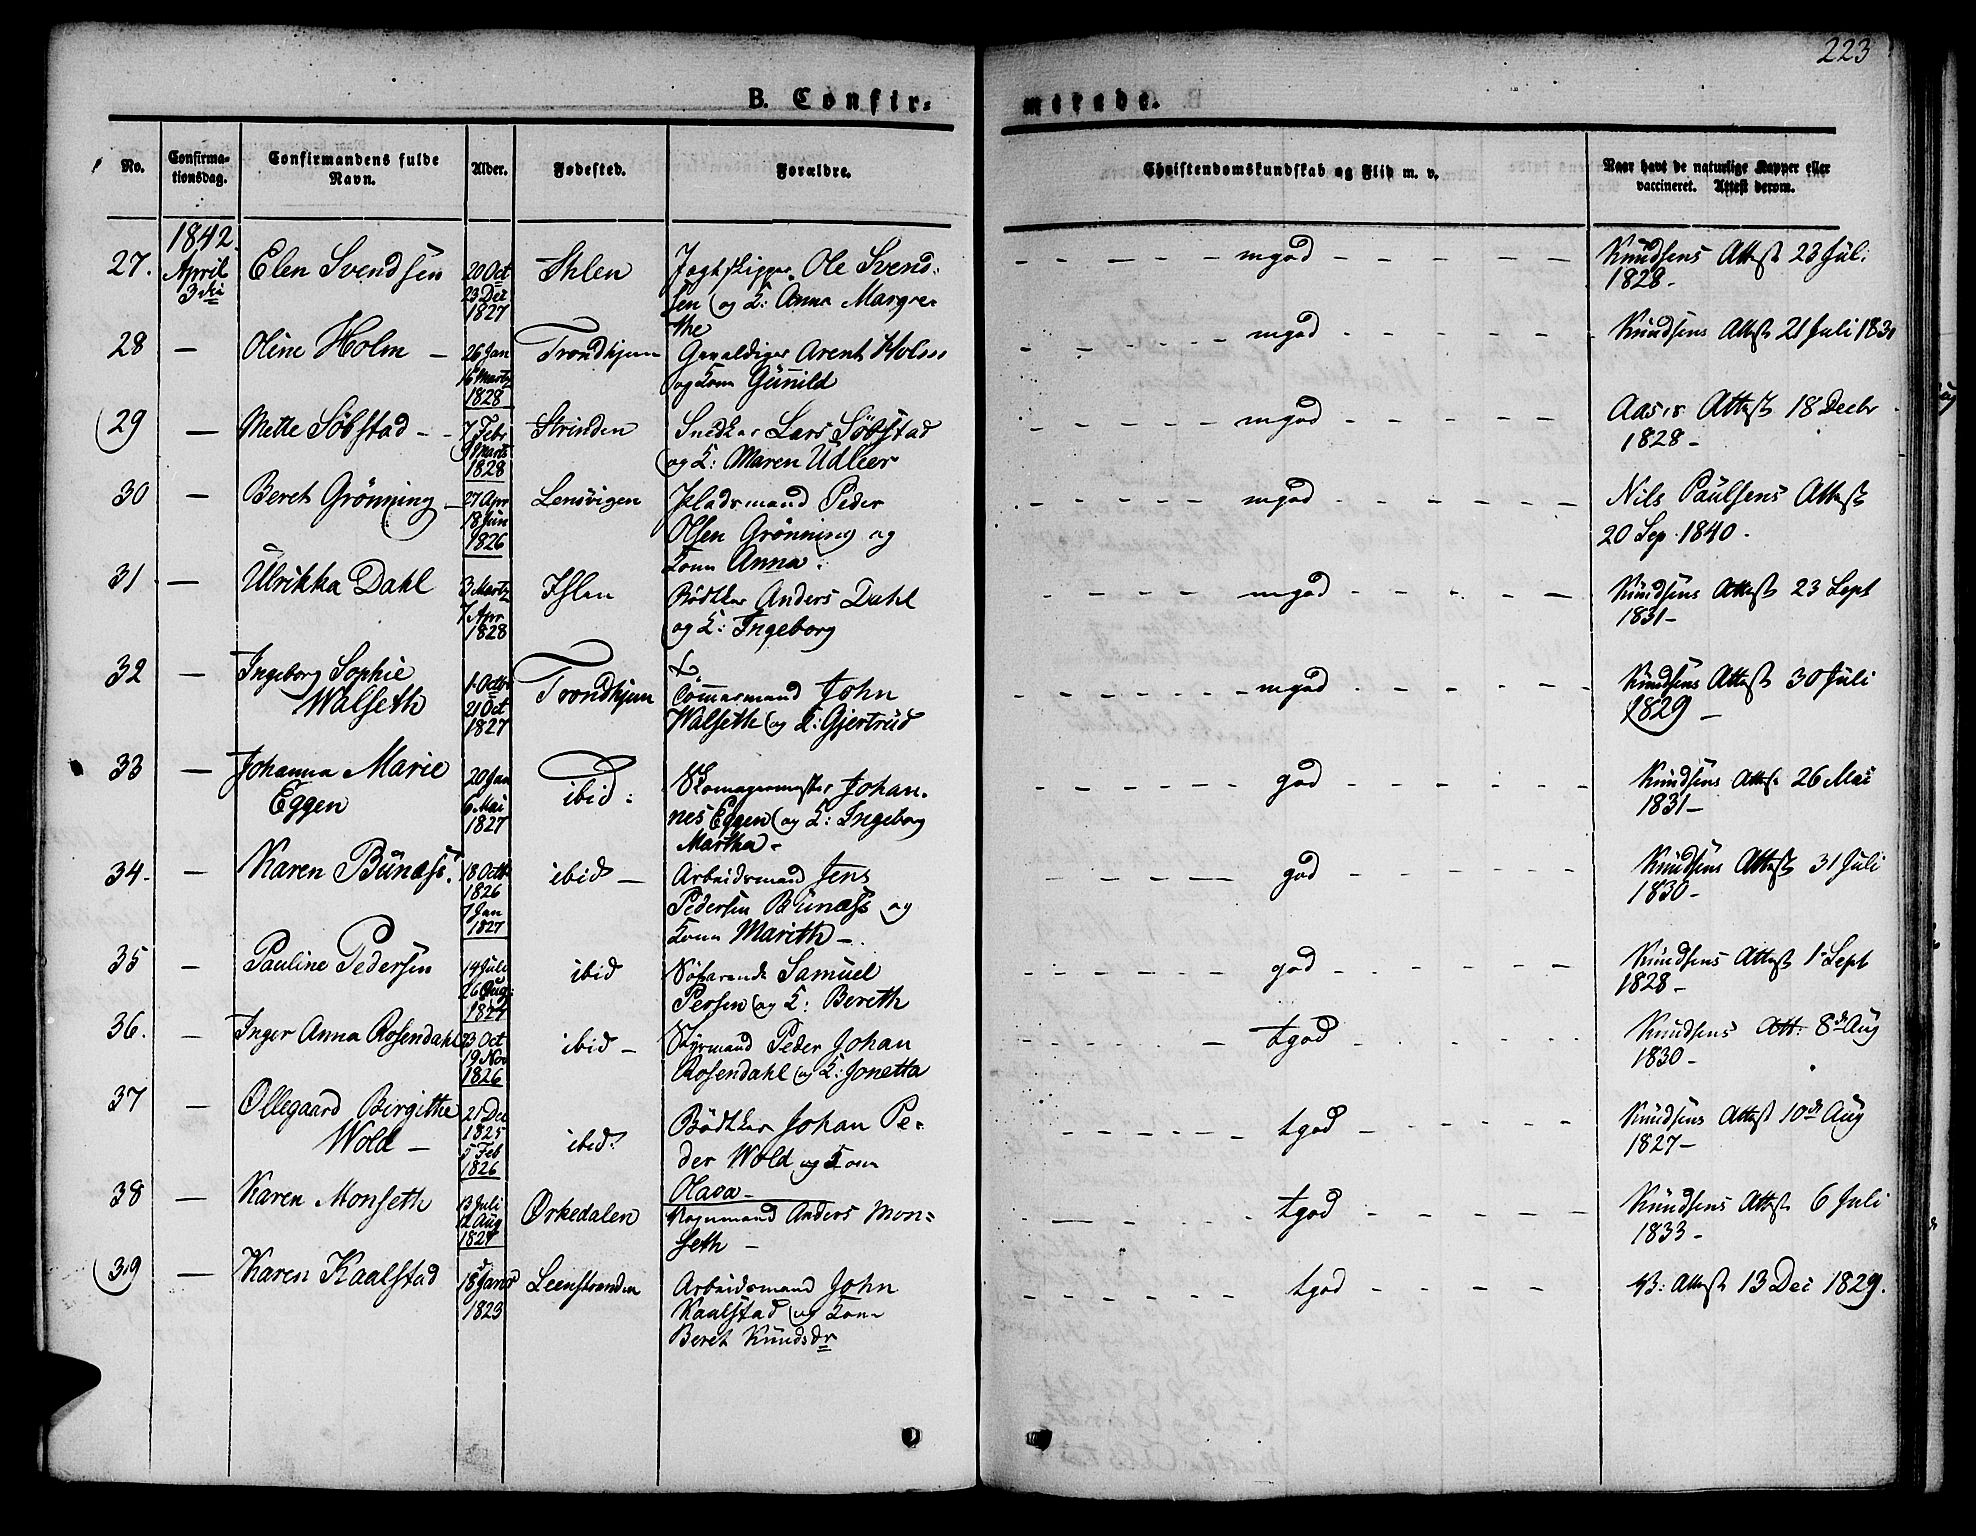 223
B. Confir-
merede.
No.
Confirma-
tionsdag.
Confirmandens fulde
Navn.
Alder.
Fødested.
Forældre.
Christendomskundskab og Flid m. v.
Naar havt de naturlige Kopper eller
vaccineret. Attest derom.
1842
27. April 3die Elen Svendsen 20 Oct 23 Dec 1827 Ihlen
Jagtskipper Ole Svend-
sen og K: Anna Margre-
the
mgod
Knudsens Attest 23 Juli
1828-
28 - Oline Holm - 26 Jan 16 Martz 1828 Trondhjem
Gevaldiger Arent Holm
og Kone Gunild
mgod
Knudsens Attest 21 Juli 1831
29 - Mette Søbstad - 7 Febr 9 Marts 1828 Strinden
Snedker Lars Søbstad
og K: Maren Udleer
mgod
Attest 18 Decbr
1828-
30 - Beret Grønning - 27 Apr 18 Jun 1826 Lensvigen
Pladsmand Peder
Olsen Grønning og
Kone Anna.
mgod
Nils Paulsens Attest
20 Sep. 1840.
31 - Ulrikka Dahl 3 Martz 7 Apr 1828 Ihlen
Bødtker Anders Dahl
og K: Ingeborg
mgod
Knudsens Attest 23 Sept
1831-
32 - Ingeborg Sophie
Walseth 1 Octbr 21 Oct 1827 Trondhjem
Tømmermand John
Walseth og K: Gjertrud
mgod
Knudsens Attest 30 Juli
1829-
33 - Johanna Marie
Eggen 20 Jan 6 Mai 1827 ibid:
Skomagermester Johan-
nes Eggen og K: Ingeborg
Martha-
god
Knudsens Attest 26 Mai
1831-
34. - Karen Bunæss. 18 Octb 1826 7 Jan 1827 ibid -
Arbeidsmand Jens
Pedersen Bunæss og
Kone Marith-.
god
Knudsens Attest 31 Juli
1830-
35 - Pauline Pedersen 14 Juli 26 Aug: 1827 ibid
Søfarende Samuel
Persen og K: Bereth
god
Knudsens Attest 1 Sept
1828-
36. - Inger Anna Rosendahl 23 Oct 19 Nov 1826 ibid -
Styrmand Peder Johan
Rosendahl og K: Jonetta
tgod
Knudsens Att: 8de Aug
1830-
37 - Ollegaard Birgithe
Wold - 21 Dec 1825 5 Feb 1826 ibid.
Bødtker Johan Pe-
der Wold og Kone
Olava-
tgod
Knudsens Attest 10de Aug
1827-
38 - Karen Monseth 13 Juli 12 Aug 1827 Ørkedalen
Vognmand Anders Mon-
seth -
tgod
Knudsens Attest 6 Juli
1833-
39 - Karen Kaalstad 18 Janr 1823 Leenstranden
Arbeidsmand John
Kaalstad og Kone
Beret Knudsdr
tgod
Attest 13 Dec 1829.